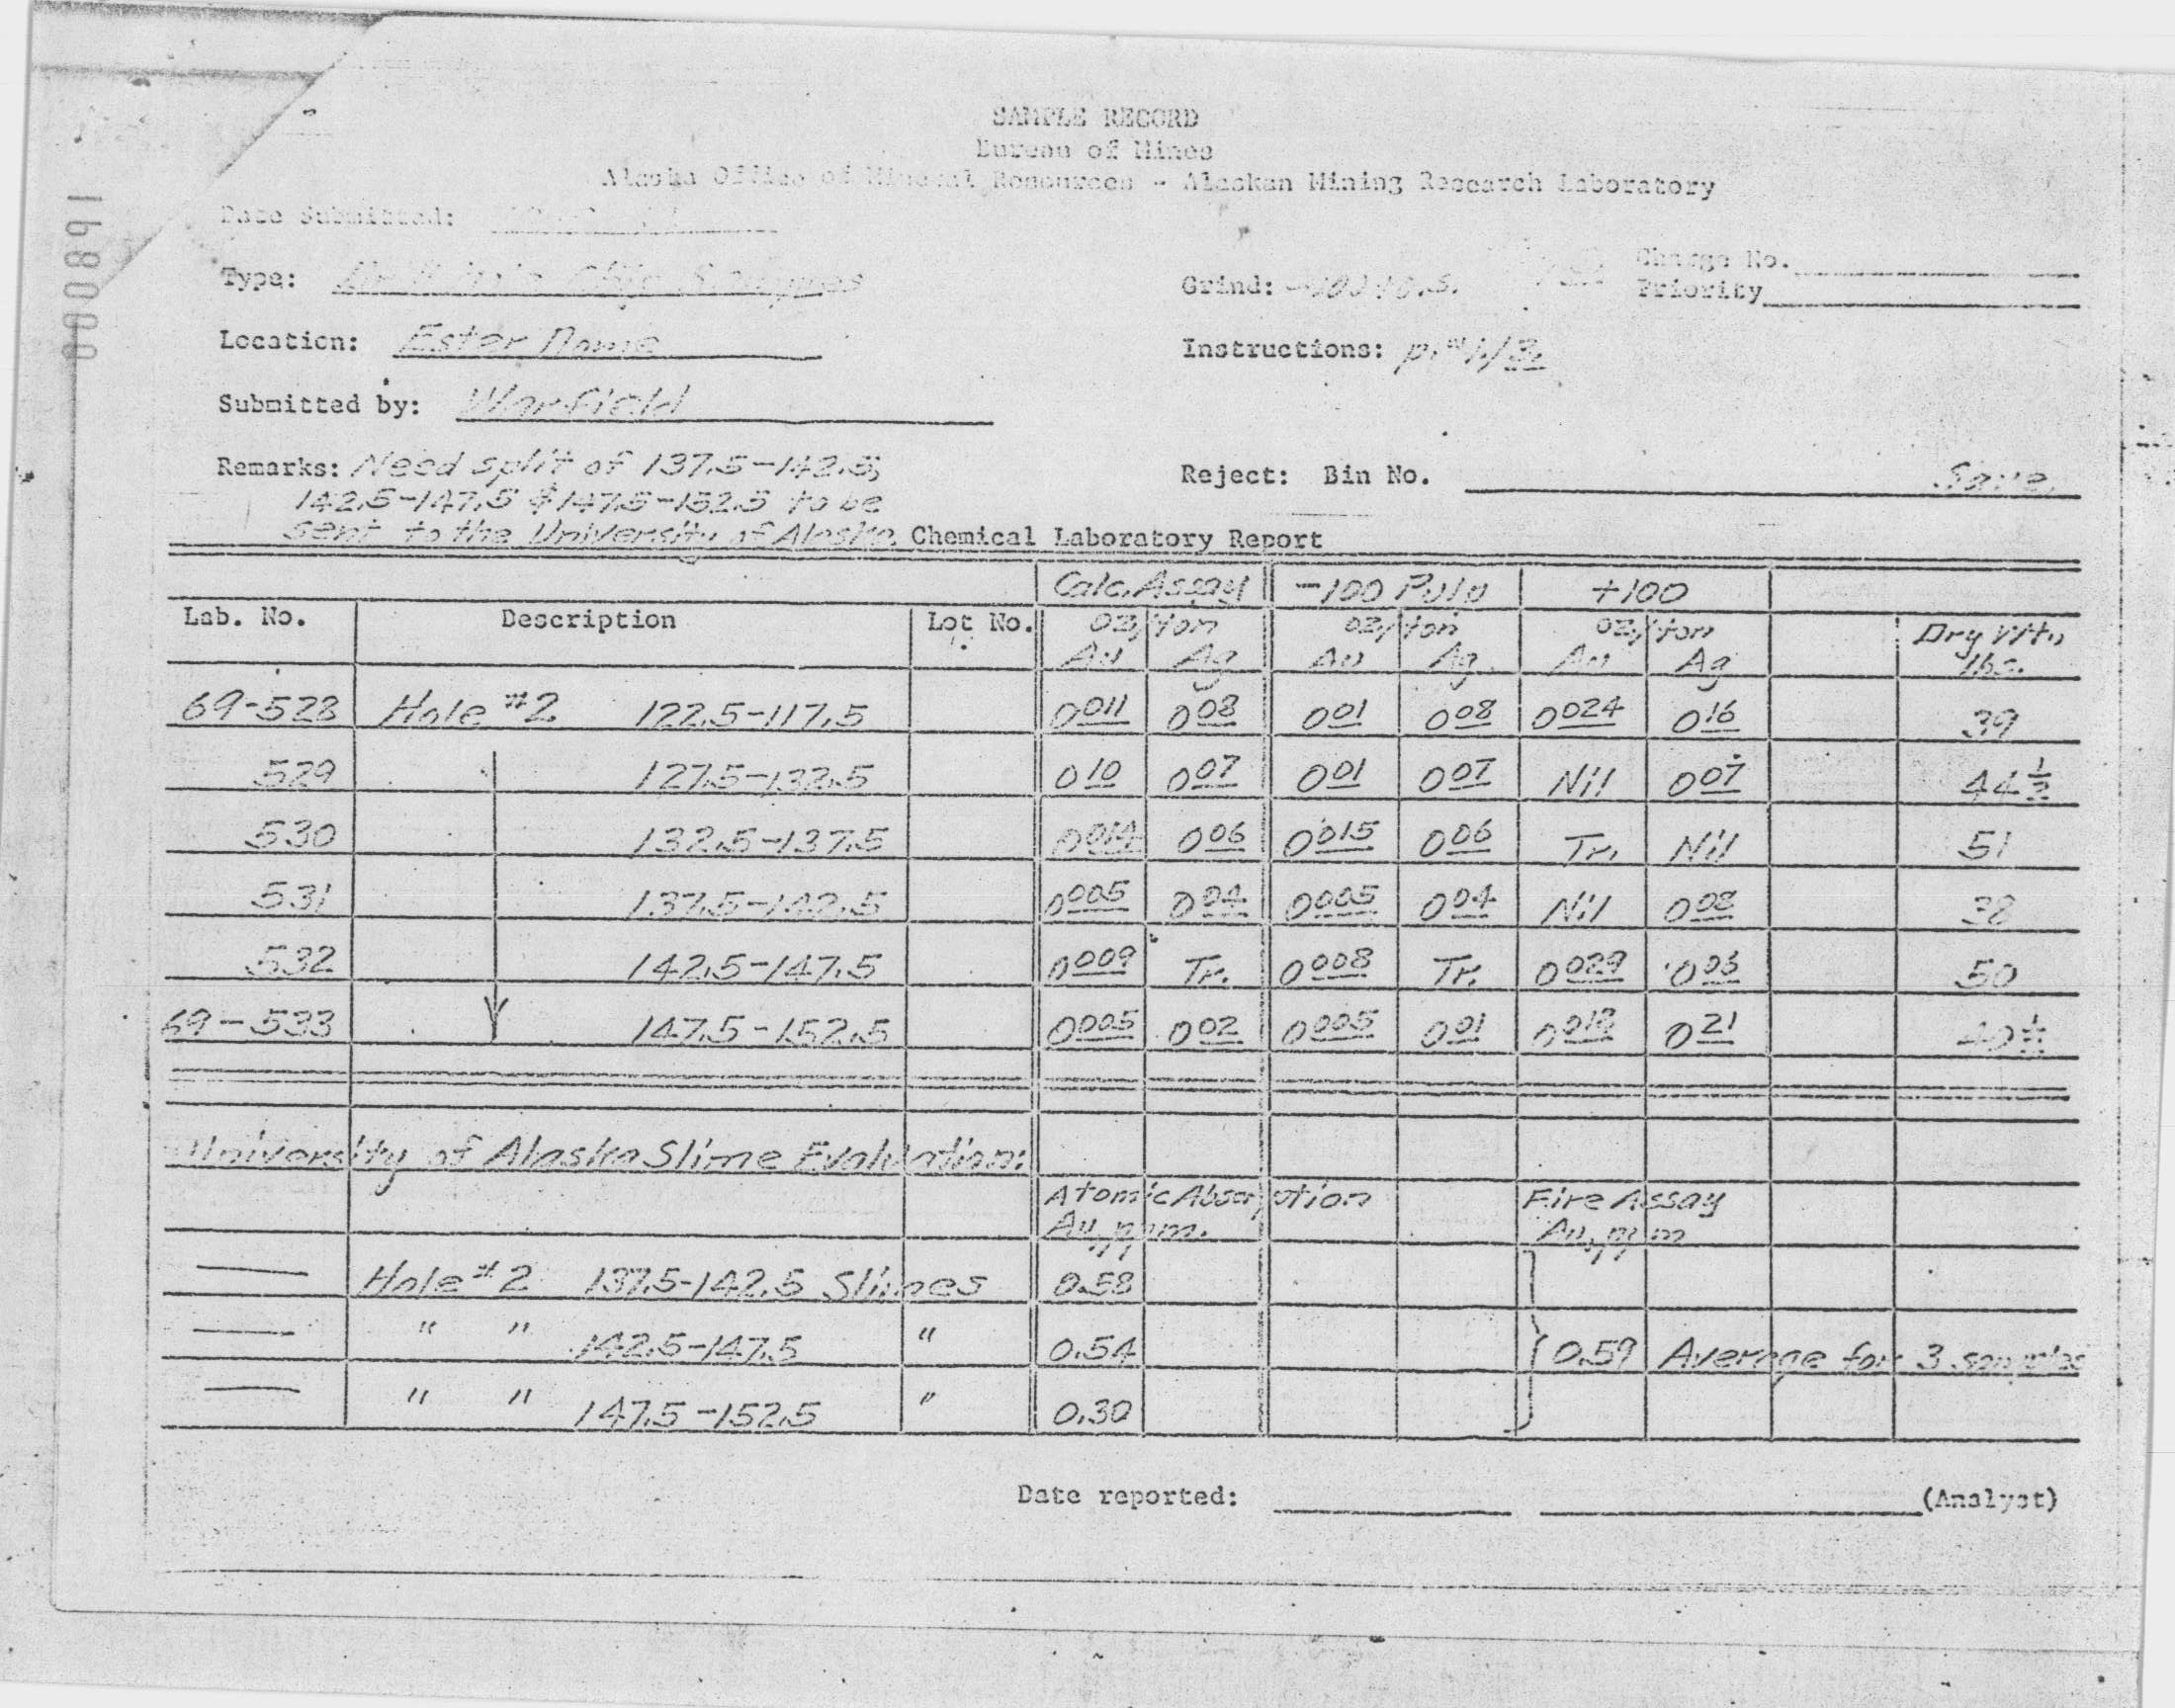 SAMPLE RECORD
Bureau of Mines
Alaska Office of Mineral Resources - Alaskan Mining Research Laboratory
Date Submitted:
Type: Samples
Grind: Charge No.
Priority
Location: Ester Dome
Instructions:
Submitted by: Warfield
Remarks: Need split of 137.5-142.5;
142.5-147.5 & 147.5-152.5 to be
sent to the University of Alaska
Reject: Bin No. Save.
Chemical Laboratory Report
Calc. Assay -100 Pulp +100
Lab. No. Description Lot No. oz/ton oz/ton oz/ton Dry Wt. lbs.
Au Ag Au Ag Au Ag
69-528 Hole #2 122.5-117.5 0011 008 001 008 0024 016 39
529 127.5-132.5 010 007 001 007 Nil 007 44 1/2
530 132.5-137.5 0014 006 0015 006 Tr. Nil 51
531 137.5-142.5 0005 004 0005 004 Nil 008 38
532 142.5-147.5 0009 Tr. 0008 Tr. 0029 003 50
69-533 147.5-152.5 0005 002 0005 001 0018 021
University of Alaska Slime Evaluation:
Atomic Absorption Fire Assay
Au, ppm. Au, ppm
Hole #2 137.5-142.5 Slimes 0.58
" " 142.5-147.5 " 0.54 0.59 Average for 3 samples
" " 147.5-152.5 " 0.30
Date reported: (Analyst)
168000